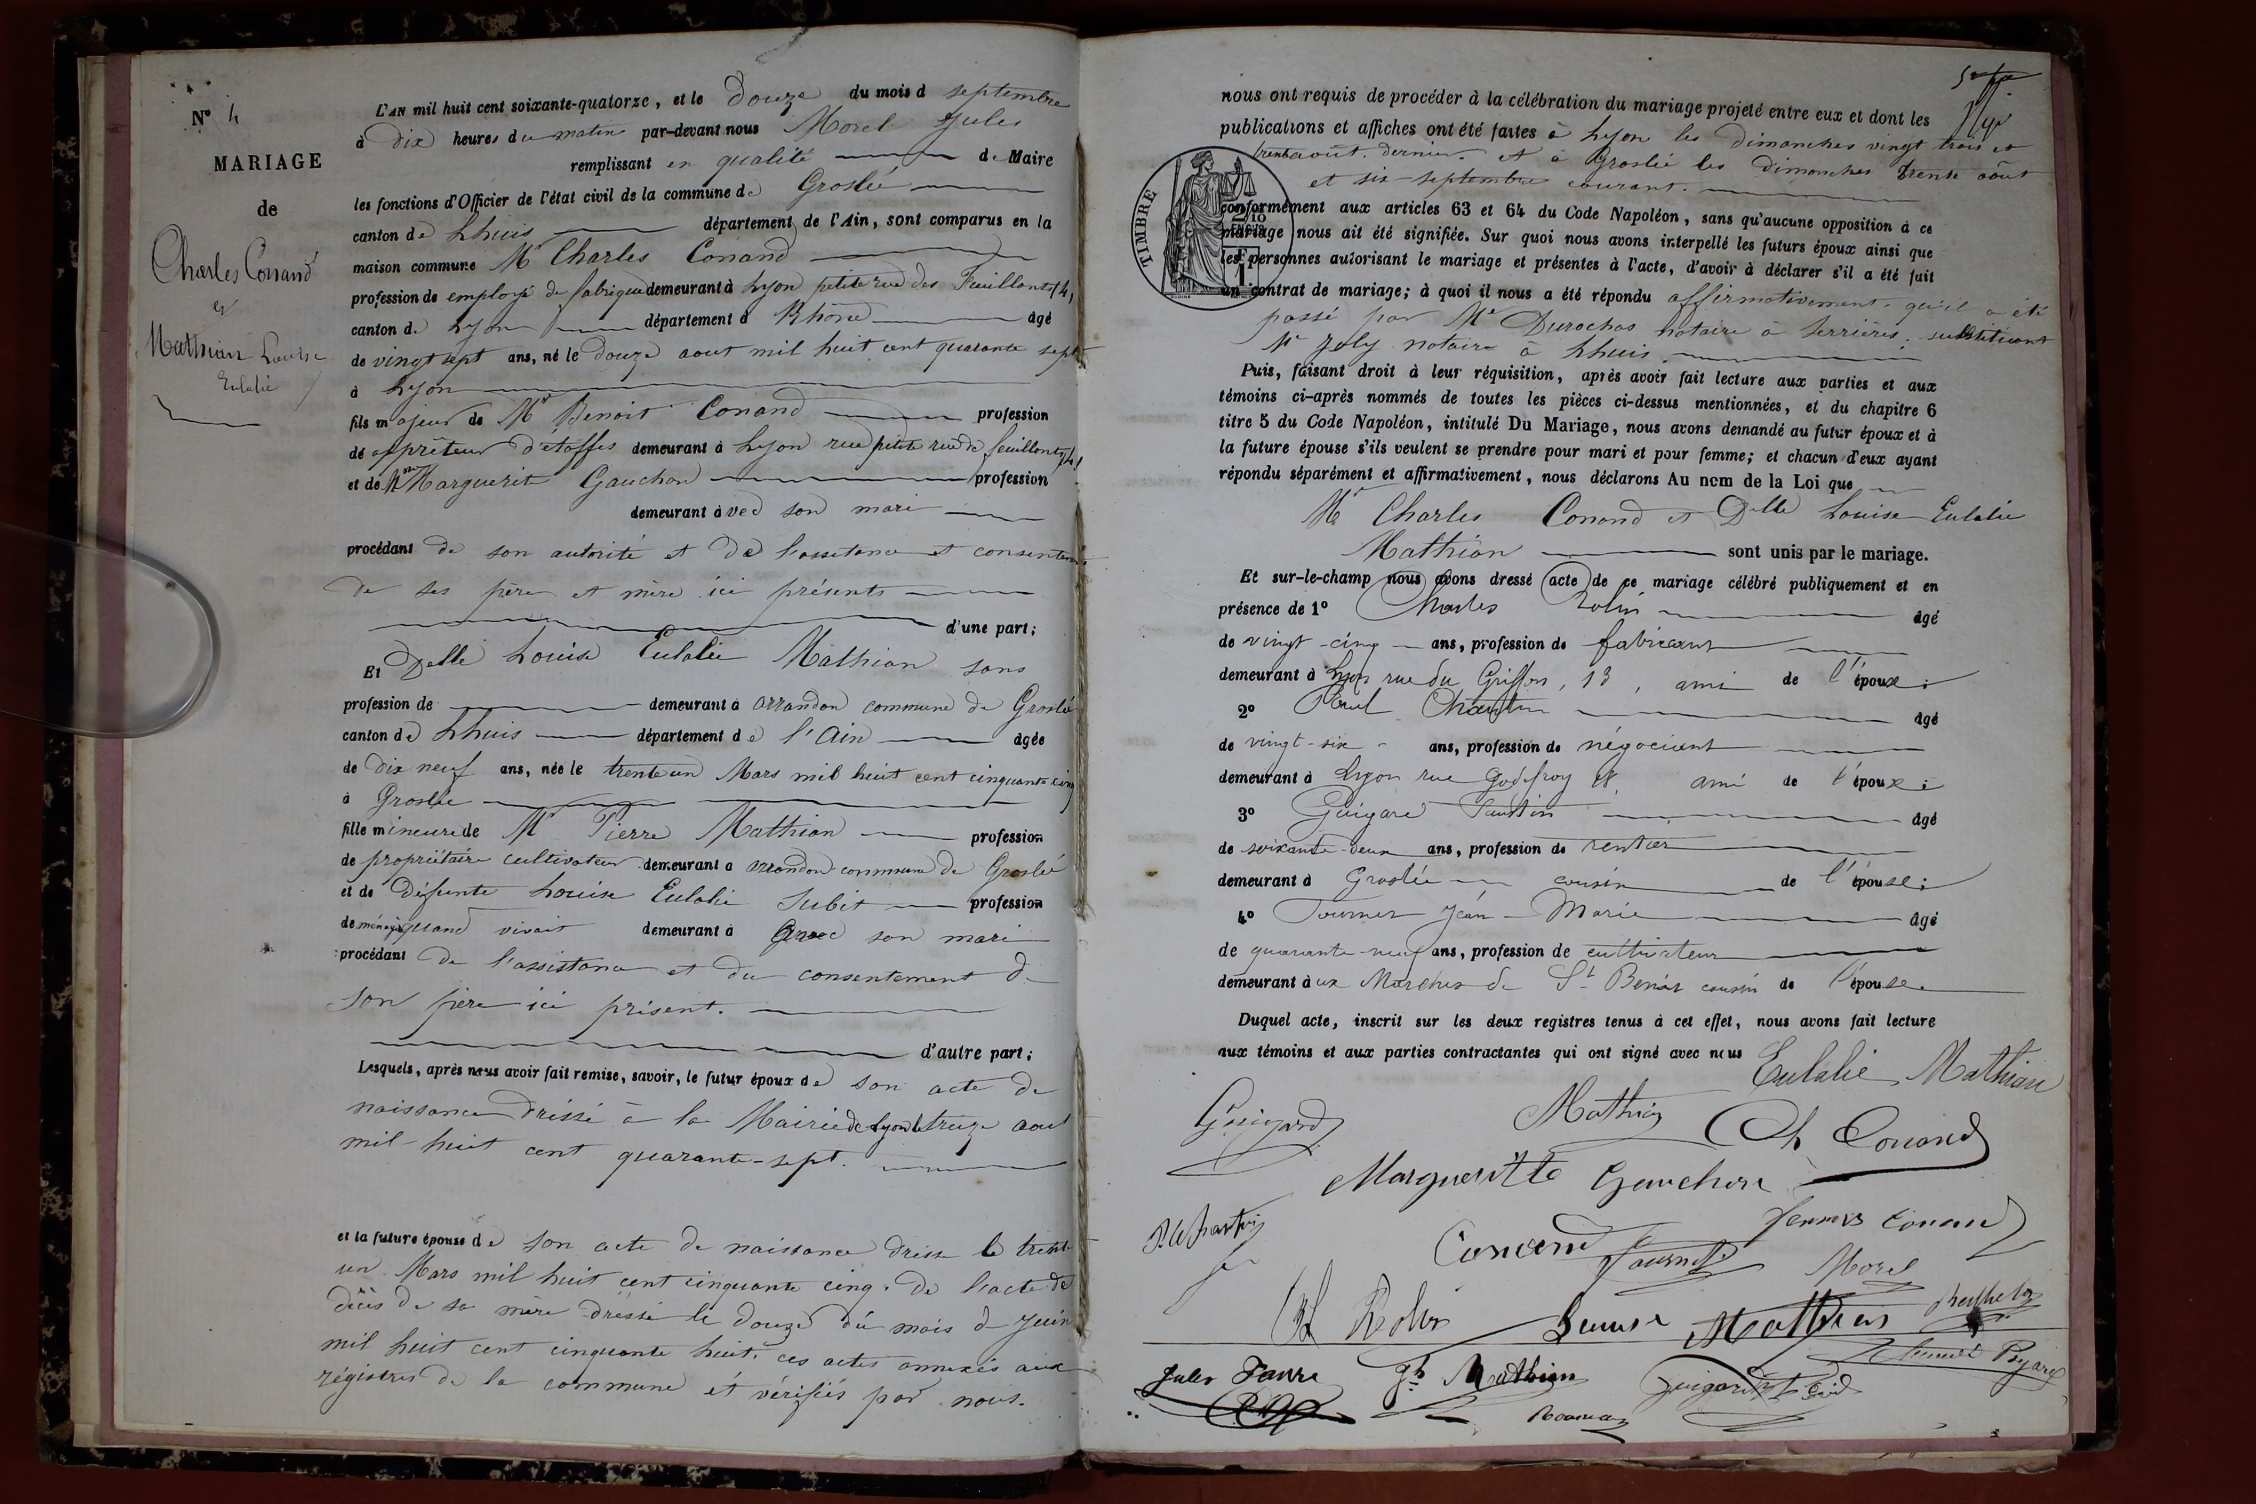 N° 4
MARIAGE
de
Charles Conand
et
Mathian Louise
Eulalie
L'AN mil huit cent soixante-quatorze, et le douze du mois d septembre
à dix heures du matin par-devant nous Morel Jules
remplissant en qualité de Maire
les fonctions d'Officier de l'état civil de la commune de Groslée
canton de Lhuis département de l'Ain, sont comparus en la
maison commune Mr Charles Conand
profession de employé de fabrique demeurant à Lyon petite rue des Feuillants, 4,
canton de Lyon département d Rhône âgé
de vingt sept ans, né le douze aout mil huit cent quarante sept
à Lyon
fils majeur de Mr Benoit Conand profession
de apprêteur d'étoffes demeurant à Lyon rue petite rue de feuillants, 4,
et de Mme Marguerite Gauchon profession
demeurant avec son mari
procédant de son autorité et de l'assistance et consentement
de ses père et mère ici présents
d'une part;
Et Delle Louise Eulalie Mathian sans
profession de demeurant à arrandon commune de Groslée
canton de Lhuis département de l'Ain âgée
de dix neuf ans, née le trente un Mars mil huit cent cinquante cinq
à Groslée
fille mineure de Mr Pierre Mathian profession
de propriétaire cultivateur demeurant a arrandon commune de Groslée
et de Défunte Louise Eulalie Subit profession
de ménagère quand vivait demeurant à avec son mari
procédant de l'assistance et du consentement de
son père ici présent.
d'autre part;
Lesquels, après nous avoir fait remise, savoir, le futur époux de son acte de
naissance dressé à la Mairie de Lyon le treize aout
mil huit cent quarante-sept.
et la future épouse de son acte de naissance dressé le trente
un Mars mil huit cent cinquante cinq. de l'acte de
décès de sa mère dressé le douze du mois d Juin
mil huit cent cinquante huit. ces actes annexés aux
régistres de la commune et vérifiés par nous.
nous ont requis de procéder à la célébration du mariage projeté entre eux et dont les
publications et affiches ont été faites à Lyon les dimanches vingt trois et
trente août dernier. et à Groslée les dimanches trente août
et six septembre courant.
TIMBRE
conformément aux articles 63 et 64 du Code Napoléon, sans qu'aucune opposition à ce
mariage nous ait été signifiée. Sur quoi nous avons interpellé les futurs époux ainsi que
les personnes autorisant le mariage et présentes à l'acte, d'avoir à déclarer s'il a été fait
un contrat de mariage; à quoi il nous a été répondu affirmativement. qu'il a été
passé par Me Durochas notaire à Serrières, substituant
Me Joly notaire à Lhuis.
Puis, faisant droit à leur réquisition, après avoir fait lecture aux parties et aux
témoins ci-après nommés de toutes les pièces ci-dessus mentionnées, et du chapitre 6
titre 5 du Code Napoléon, intitulé Du Mariage, nous avons demandé au futur époux et à
la future épouse s'ils veulent se prendre pour mari et pour femme; et chacun d'eux ayant
répondu séparément et affirmativement, nous déclarons Au nom de la Loi que
Mr Charles Conand et Delle Louise Eulalie
Mathian sont unis par le mariage.
Et sur-le-champ nous avons dressé acte de ce mariage célébré publiquement et en
présence de 1° Charles Rolin âgé
de vingt-cinq ans, profession de fabricant
demeurant à Lyon rue du Griffon, 13, ami de l'époux;
2° Paul âgé
de vingt-six ans, profession de négociant
demeurant à Lyon rue Godefroy 18, ami de l'époux;
3° Guigard Faustin âgé
de soixante-deux ans, profession de rentier
demeurant à Groslée cousin de l'épouse;
4° Fournier Jean-Marie âgé
de quarante-neuf ans, profession de cultivateur
demeurant aux Marches de St Benoit cousin de l'épouse.
Duquel acte, inscrit sur les deux registres tenus à cet effet, nous avons fait lecture
aux témoins et aux parties contractantes qui ont signé avec nous Eulalie Mathian
Guigard Mathian Ch Conand
Margueritte Gauchon
Conand Fournier Morel
Ch Rolin Mathian Berthelon
Jules Favre Jh Mathian